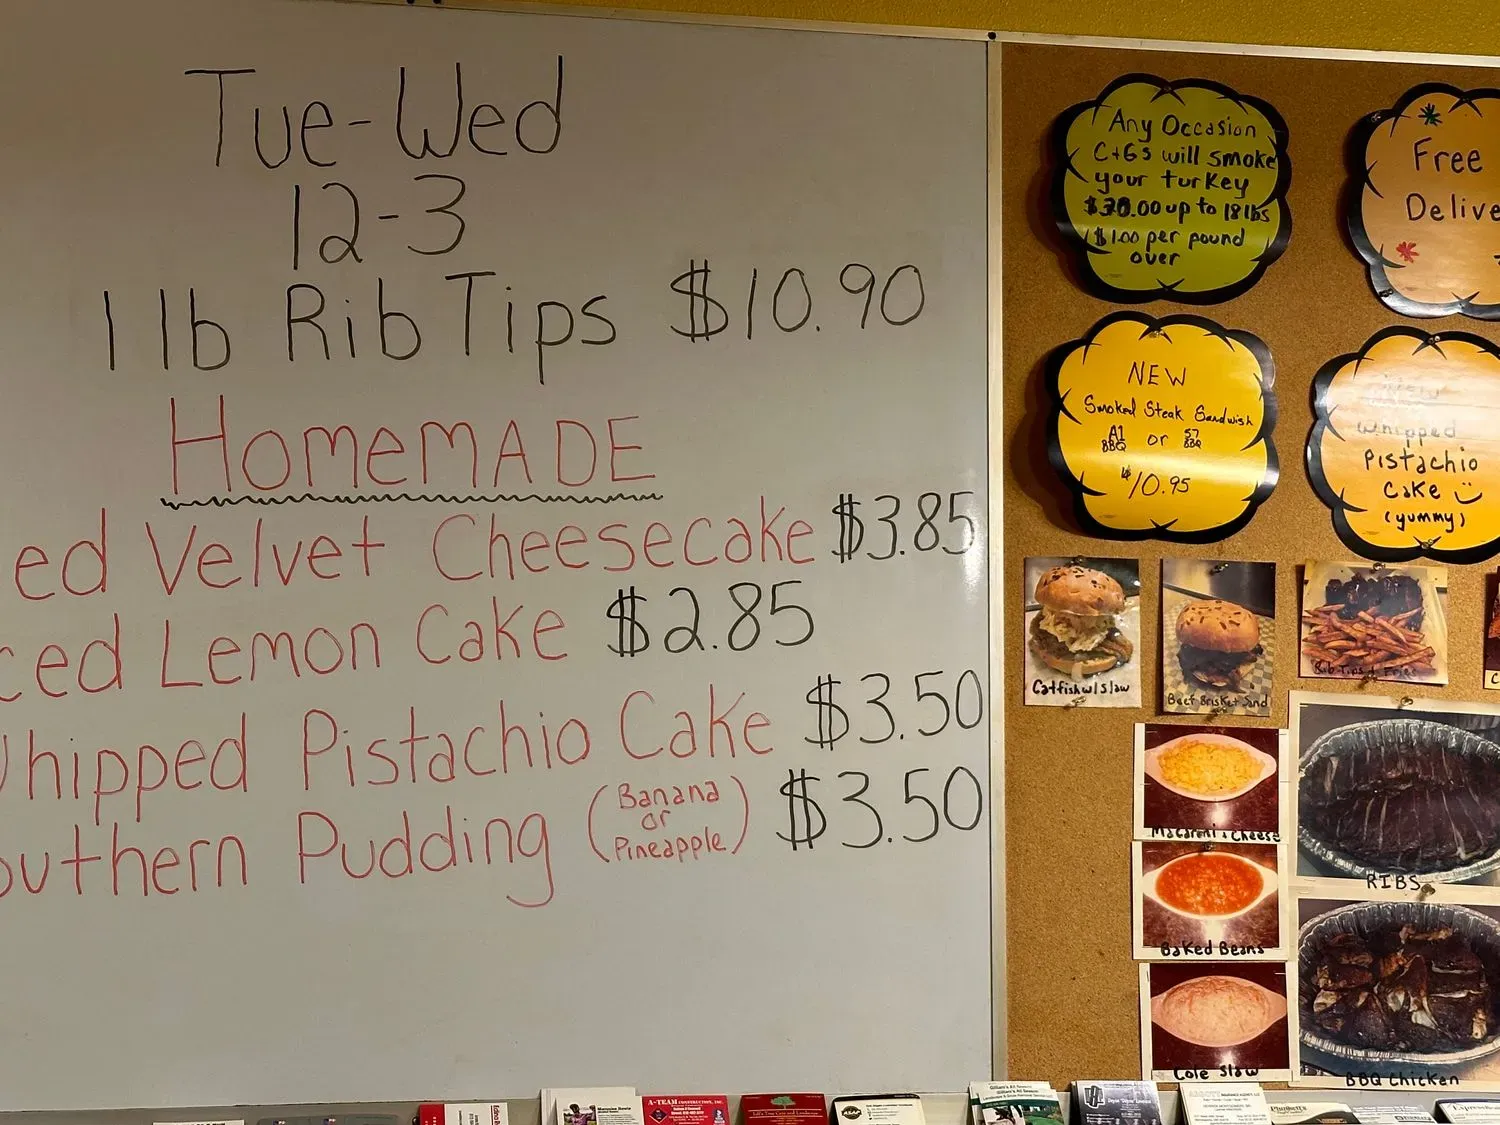 Tue-Wed
12-3
1 lb Rib Tips $10.90
HomemADE
ed Velvet Cheesecake $3.85
ced Lemon Cake $2.85
Whipped Pistachio Cake $3.50
outhern Pudding (Banana or Pineapple) $3.50
Any Occasion
C+G's will smoke
your turkey
$30.00 up to 18 lbs
$1.00 per pound
over
Free
Delive
NEW
Smoked Steak Sandwish
A1 BBQ or 57 BBQ
$10.95
Whipped
Pistachio
Cake
(yummy)
Catfish w/ slaw
Beef Brisket Sand
Rib Tips & Fries
Macaroni & Cheese
RIBS
Baked Beans
Cole Slaw
BBQ Chicken
A-TEAM CONSTRUCTION, INC.